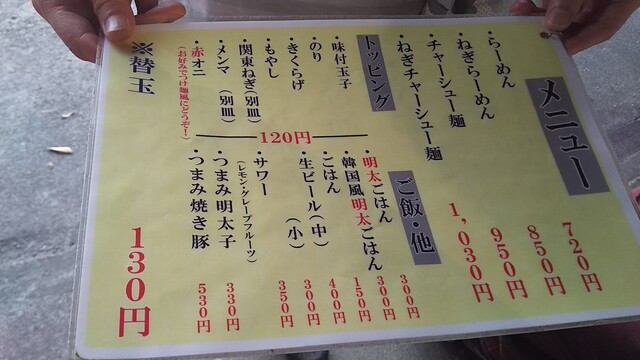 メニュー
・らーめん 720円
・ねぎらーめん 850円
・チャーシュー麺 950円
・ねぎチャーシュー麺 1,030円
トッピング
・味付玉子
・のり
・きくらげ
・もやし
・関東ねぎ(別皿)
・メンマ(別皿)
・赤オニ
(お好みでつけ麺風にどうぞ!)
120円
ご飯・他
・明太ごはん 300円
・韓国風明太ごはん 300円
・ごはん 150円
・生ビール(中) 400円
(小) 300円
・サワー 350円
(レモン・グレープフルーツ)
・つまみ明太子 330円
・つまみ焼き豚 530円
※替玉 130円